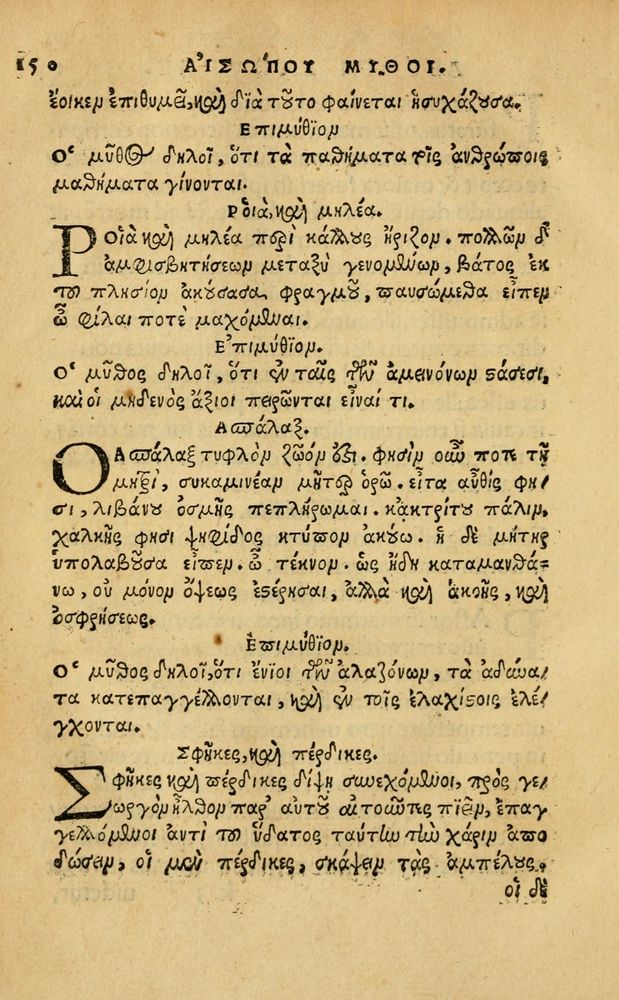 150 ΑἰΣΩ´ΠΟΥ ΜΥ͂ΘΟΙ.
ἔοικεν ἐπιθυμεῖν, καὶ διὰ τοῦτο φαίνεται ἡσυχάζουσα.
Επιμύθιον
Ο῾ μῦθος δηλοῖ, ὅτι τὰ παθήματα τοῖς ἀνθρώποις
μαθήματα γίνονται.
Ροιὰ, καὶ μηλέα.
Ροιὰ καὶ μηλέα περὶ κάλλους ἤριζον. πολλῶν δ᾽
ἀμφισβητήσεων μεταξὺ γενομένων, βάτος ἐκ
τοῦ πλησίον ἀκούσασα φραγμοῦ, παυσώμεθα εἶπεν
ὦ φίλαι ποτὲ μαχόμεναι.
Ε᾽πιμύθιον.
Ο῾ μῦθος δηλοῖ, ὅτι ἐν ταῖς τῶν ἀμεινόνων στάσεσι,
καὶ οἱ μηδενὸς ἄξιοι πειρῶνται εἶναί τι.
Ασπάλαξ.
Ο Ασπάλαξ τυφλὸν ζῶόν ἐστι. φησὶν οὖν ποτε τῇ
μητρὶ, συκαμινέαν μῆτερ ὁρῶ. εἶτα αὖθις φη-
σι, λιβάνου ὀσμῆς πεπλήρωμαι. κἀκτρίτου πάλιν,
χαλκῆς φησι ψηφίδος κτύπον ἀκούω. ἡ δὲ μήτηρ
ὑπολαβοῦσα εἶπεν. ὦ τέκνον. ὡς ἤδη καταμανθά-
νω, οὐ μόνον ὄψεως ἐστέρησαι, ἀλλὰ καὶ ἀκοῆς, καὶ
ὀσφρήσεως.
Επιμύθιον.
Ο῾ μῦθος δηλοῖ, ὅτι ἔνιοι τῶν ἀλαζόνων, τὰ ἀδύνα-
τα κατεπαγγέλλονται, καὶ ἐν τοῖς ἐλαχίστοις ἐλέ-
γχονται.
Σφῆκες, καὶ πέρδικες.
Σφῆκες καὶ πέρδικες δίψῃ συνεχόμενοι, πρὸς γε-
ωργὸν ἦλθον παρ᾽ αὐτοῦ αἰτοῦντες πιεῖν, ἐπαγ
γελλόμενοι ἀντὶ τοῦ ὕδατος ταύτην τὴν χάριν ἀπο
δώσειν, οἱ μὲν πέρδικες, σκάψειν τὰς ἀμπέλους.
οἱ δὲ